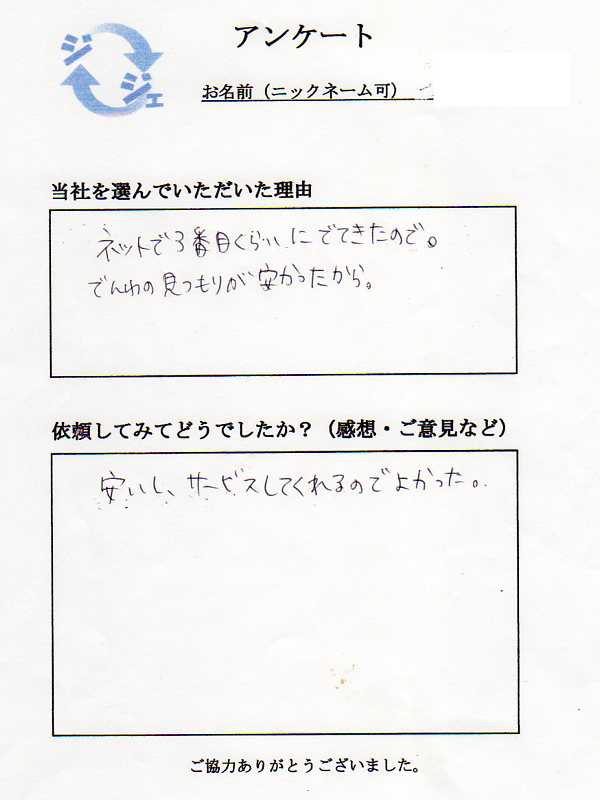 ジ
ジェ
アンケート
お名前（ニックネーム可）
当社を選んでいただいた理由
ネットで3番目くらいにでてきたので。
でんわの見つもりが安かったから。
依頼してみてどうでしたか？（感想・ご意見など）
安いし、サービスしてくれるのでよかった。
ご協力ありがとうございました。